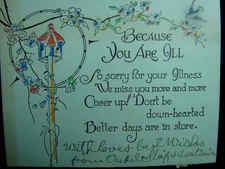 BECAUSE
YOU ARE ILL
So sorry for your illness
We miss you more and more
Cheer up! Don't be
down-hearted
Better days are in store.
With loves best Wishes
from